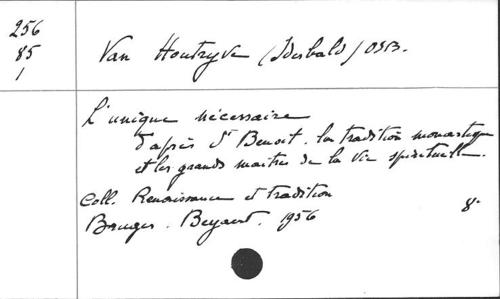 256
85
1
Van Houtryve (Idesbald) OSB.
L'unique nécessaire
d'après St Benoit. la tradition monastique
et les grands maitres de la vie spirituelle.
Coll. Renaissance et tradition
Bruges. Beyaert. 1956
8°